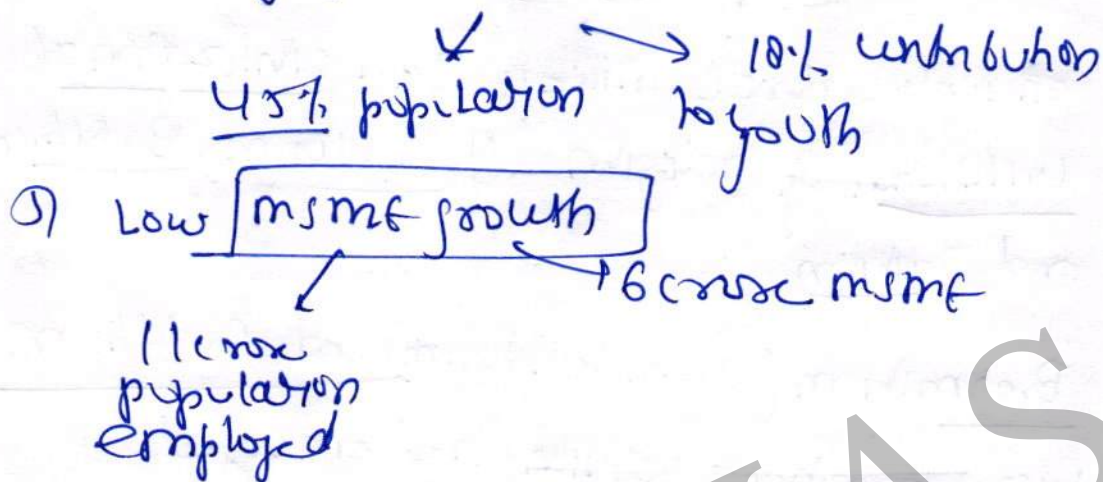 45% population
18% contribution
to youth
5) Low msme growth
6 crore msme
11 crore
population
employed